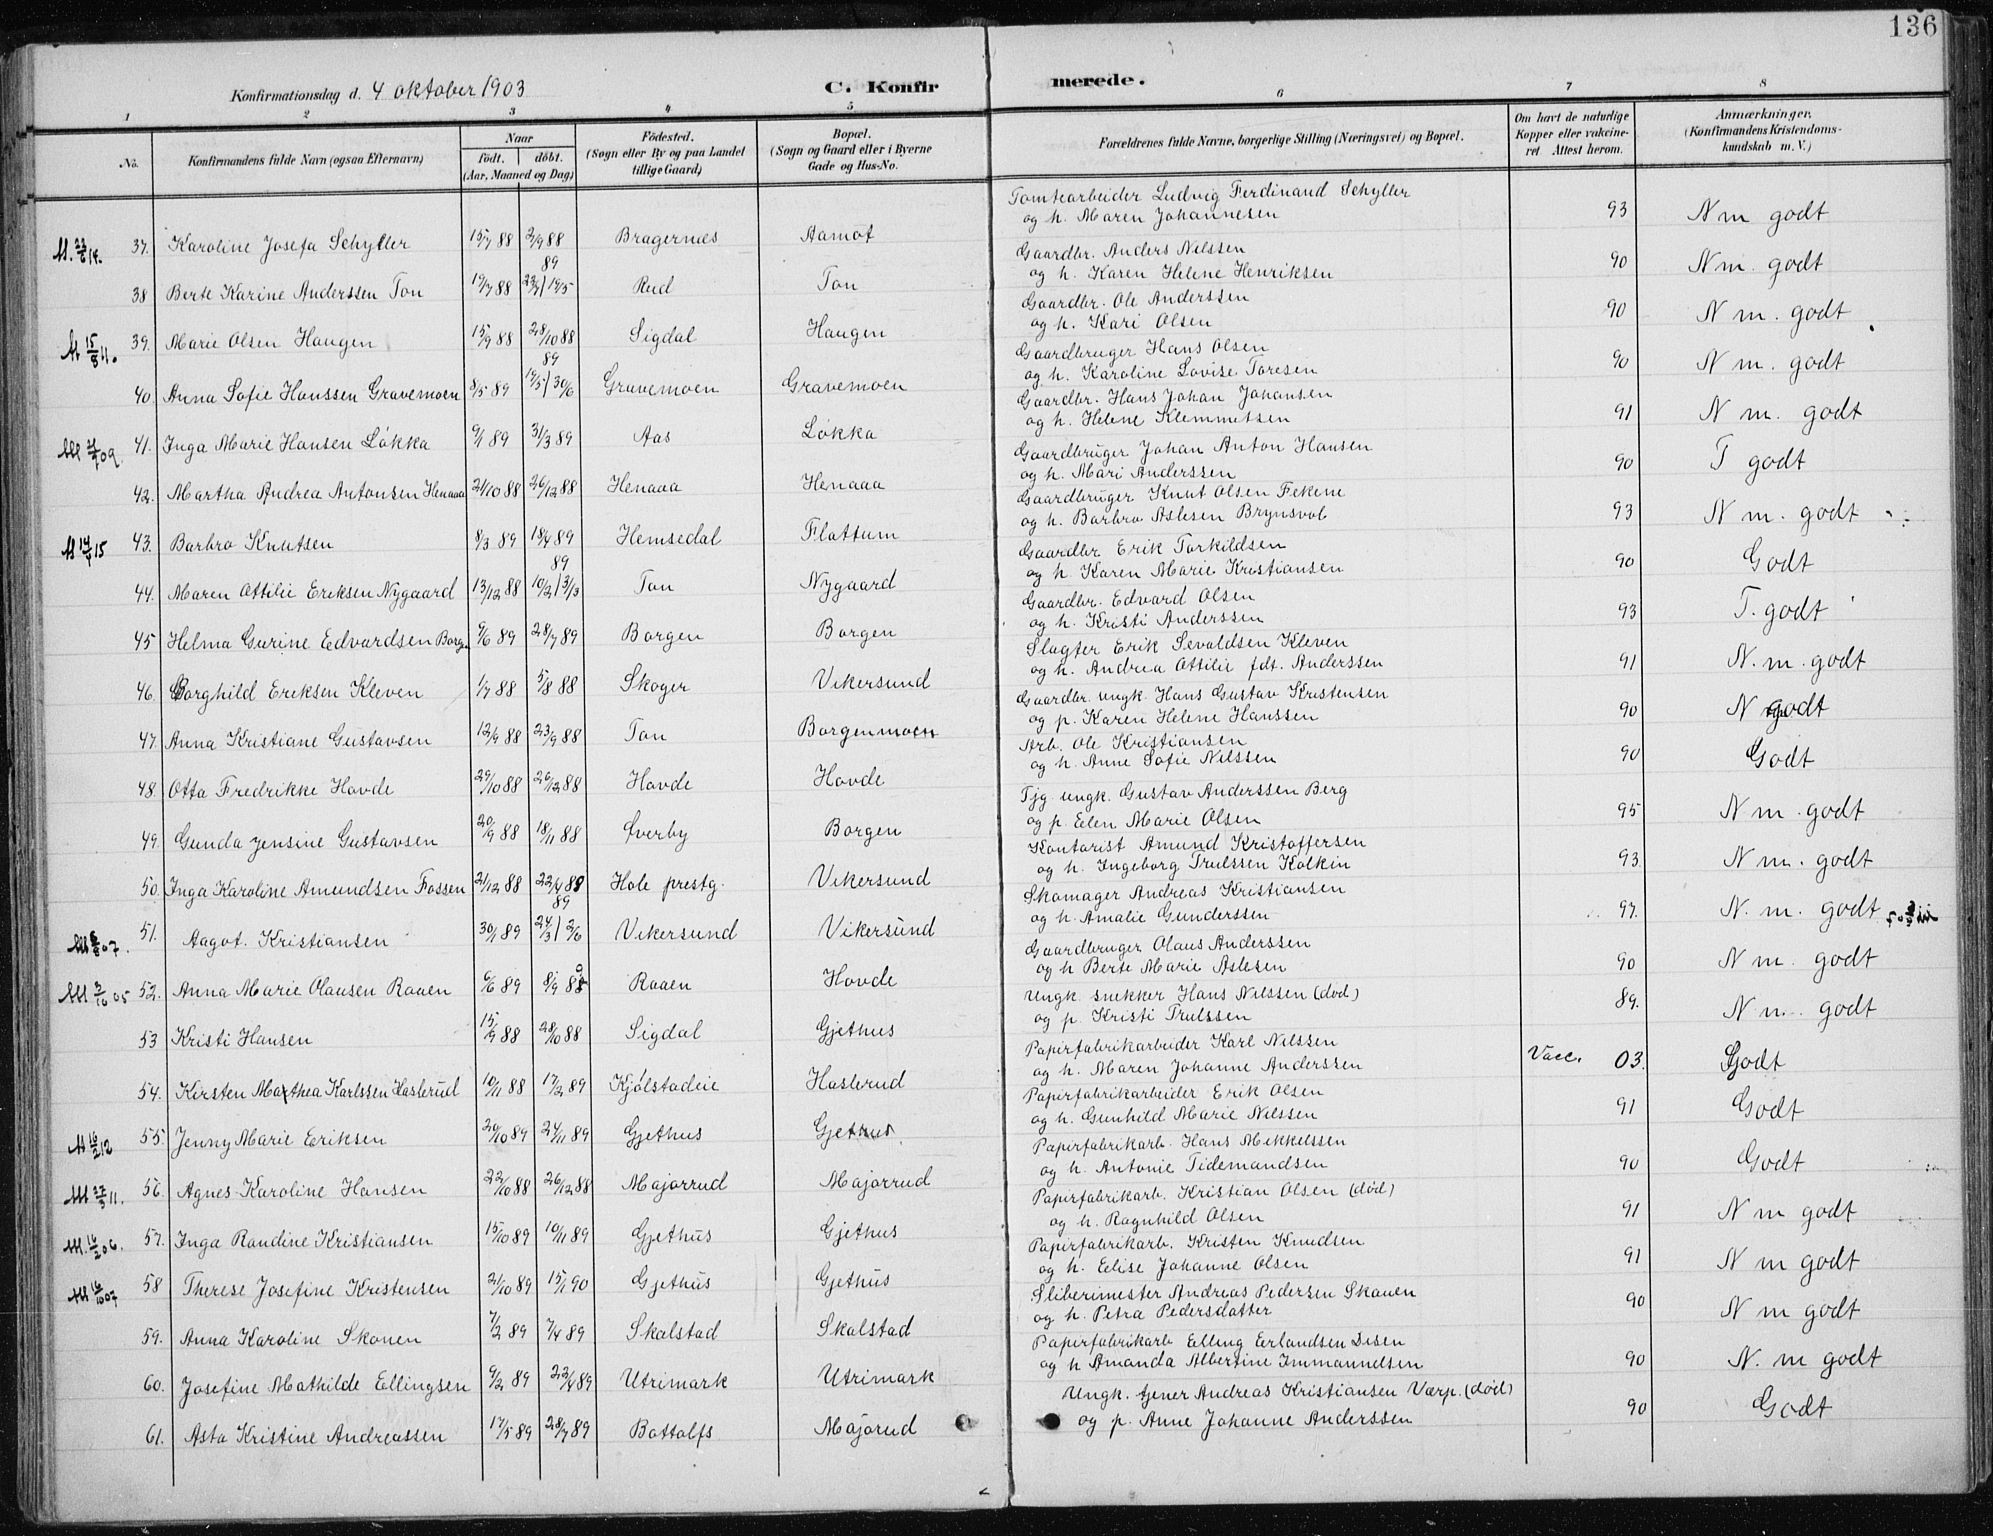 136
Konfirmationsdag d. 4 oktober 1903
C. Konfirmerede.
1 2 3 4 5 6 7 8
No. Konfirmandens fulde Navn (ogsaa Efternavn) Naar født. døbt. (Aar, Maaned og Dag) Fødested. (Sogn eller By og paa Landet tillige Gaard) Bopæl. (Sogn og Gaard eller i Byerne Gade og Hus-No. Forældrenes fulde Navne, borgerlige Stilling (Næringsvei) og Bopæl. Om havt de naturlige Kopper eller vakcineret. Attest herom. Anmærkninger. (Konfirmandens Kristendomskundskab m. V.)
37. Karoline Josefa Schyller 15/7 88 2/9 88 Bragernæs Aamot Tomtearbeider Ludvig Ferdinand Schyller og h. Maren Johannesen 93 N m godt
38 Berte Karine Anderssen Ton 19/7 88 89 Rud Ton Gaardbr. Anders Nilssen og h. Karen Helene Henriksen 90 N m. godt
M 15/8 11. 39. Marie Olsen Haugen 15/9 88 28/10 88 Sigdal Haugen Gaardbr. Ole Anderssen og h. Kari Olsen 90 N m. godt
40. Anna Sofie Hanssen Gravemoen 8/5 89 89 19/5 | 30/6 Gravemoen Gravemoen Gaardbruger Hans Olsen og h. Karoline Lovise Toresen 90 N m. godt
41. Inga Marie Hansen Løkka 9/1 89 31/3 89 Aas Løkka Gaardbr. Hans Johan Johansen og h. Helene Klemmetsen 91 N m. godt
42. Martha Andrea Antonsen Henaaa 21/10 88 26/12 88 Henaaa Henaaa Gaardbruger Johan Anton Hansen og h. Mari Anderssen 90 T godt
43. Barbro Knutsen 8/3 89 18/4 89 Hemsedal Flattum Gaardbruger Knut Olsen Fekene og h. Barbro Aslesen Brynsvol 93 N m. godt
44. Maren Ottilie Eriksen Nygaard 13/12 88 89 10/2 | 3/3 Ton Nygaard Gaardbr Erik Torkildsen og h. Karen Marie Kristiansen 90 Godt
45 Helma Gurine Edvardsen Borgen 9/6 89 28/7 89 Borgen Borgen Gaardbr. Edvard Olsen og h. Kristi Anderssen 93 T. godt
46. Borghild Eriksen Kleven 1/7 88 5/8 88 Skoger Vikersund Slagter Erik Sevaldsen Kleven og h. Andrea Ottilie fdt. Anderssen 91 N. m. godt
47. Anna Kristiane Gustavsen 12/9 88 23/9 88 Ton Borgenmoen Gaardbr. ungk. Hans Gustav Kristensen og p. Karen Helene Hanssen 90 N godt
48. Otta Fredrikke Hovde 29/10 88 26/12 88 Hovde Hovde Arb. Ole Kristiansen og h. Anne Sofie Nilssen 90 Godt
49. Gunda Jensine Gustavsen 20/9 88 18/11 88 Sverby Borgen Tjg. ungk. Gustav Anderssen Berg og p. Elen Marie Olsen 95 N m. godt
50. Inga Karoline Amundsen Fossen 21/12 88 Hole prestg. Vikersund Kontorist Amund Kristoffersen og h. Ingeborg Trulssen Kolkin 93. N m. godt
51. Aagot. Kristiansen 30/1 89 89 24/3 | 2/6 Vikersund Vikersund Skomager Andreas Kristiansen og h. Amalie Gunderssen 97. N. m. godt
M 2/10 05 52. Anna Marie Olausen Raaen 6/6 89 Raaen Hovde Gaardbruger Olaus Anderssen og h Berte Marie Aslesen 90 N m. godt
53 Kristi Hansen 15/9 88 28/10 88 Sigdal Gjethus Ungk. snekker Hans Nilssen (død) og p. Kristi Trulssen 89. N m. godt
54. Kirsten Marthea Karlssen Haslerud 10/11 88 17/2 89 Kjølstadeie Haslerud Papirfabrikarbeider Karl Nilssen og h. Maren Johanne Anderssen Vacc. 03. Godt
M 16/2 12 55. Jenny Marie Eriksen 20/10 89 24/11 89 Gjethus Gjethus Papirfabrikarbeider Erik Olsen og h. Gunhild Marie Nilssen 91 Godt
56. Agnes Karoline Hansen 22/10 88 26/12 88 Majorrud Majorrud Papirfabrikarb. Hans Mikkelssen og h. Antonie Tidemandsen 90 Godt
M. 16/2 06. 57. Inga Randine Kristiansen 15/10 89 10/11 89 Gjethus Gjethus Papirfabrikarb. Kristian Olsen (død) og h. Ragnhild Olsen 91 N m godt
M 16/10 07 58 Therese Josefine Kristensen 21/10 89 15/1 90 Gjethus Gjethus Papirfabrikarb. Kristen Knudsen og h. Elise Johanne Olsen 91 N m godt
59. Anna Karoline Skonen 7/2 89 7/4 89 Skalstad Skalstad Sliberimester Andreas Pedersen Skauen og h. Petra Pedersdatter 90 N m godt
60. Josefine Mathilde Ellingsen 9/2 89 22/4 89 Utrimark Utrimark Papirfabrikarb Elling Erlandsen Disen og h Amanda Albertine Immanuelsen 90 N. m godt
61. Asta Kristine Andreassen 17/5 89 28/7 89 Bottolfs Majorud Ungk. tjener Andreas Kristiansen Værp. (død) og p. Anne Johanne Anderssen 90 Godt